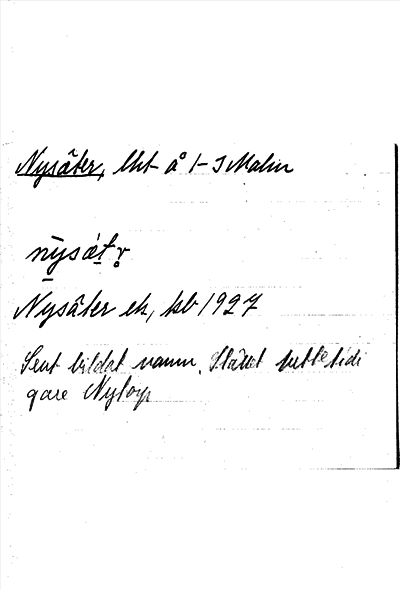 Nysäter, lht å 1-3 Malm
nysätr
Nysäter ek, kb 1927
Sent bildat namn. Stället hette tidi
gare Nytorp